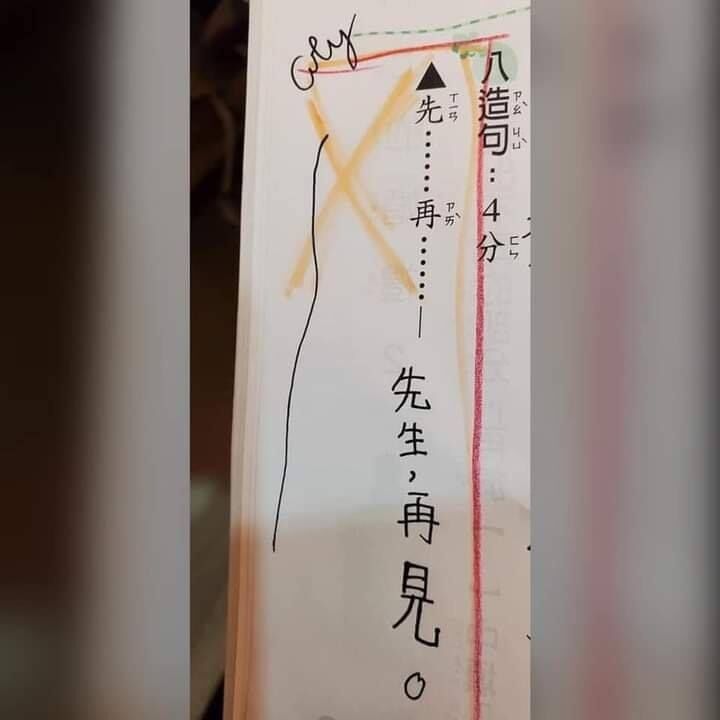 八造句：4分
▲先⋯⋯再⋯⋯—先生，再見。